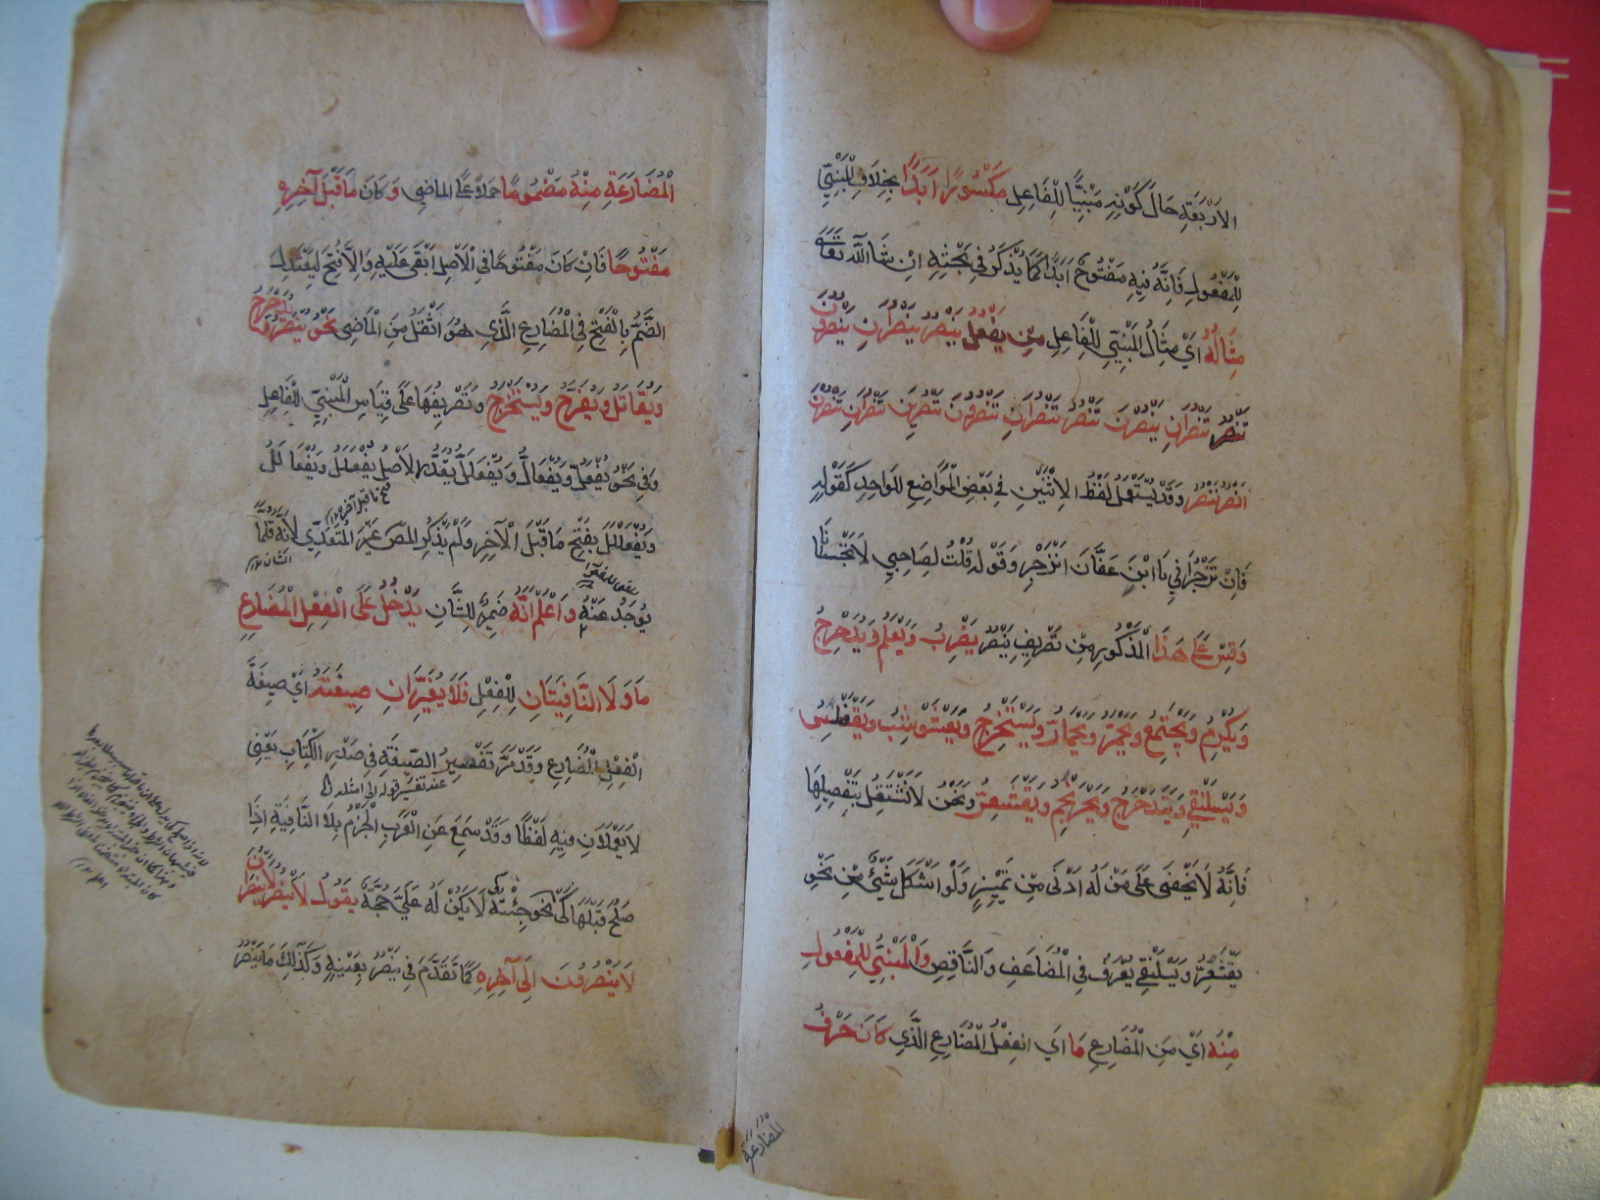 الاربعة حال كونه مبنيا للفاعل مكسورا ابدا بخلاف المبني
للمفعول فانه فيه مفتوح ابدا كما يذكر في بحثه ان شا الله تعالى
مثاله اي مثال المبني للفاعل من يفعل ينصر ينصران ينصرون
تنصر تنصران ينصرن تنصر تنصران تنصرون تنصرين تنصران تنصرن
انصر ننصر وقد يستعمل لفظ الاثنين في بعض المواضع للواحد كقوله
فان تزجراني ياابن عفان انزجر وقوله قلت لصاحبي لا تحبسانا
وقس على هذا المذكور من تصريف ينصر يضرب ويعلم ويدحرج
ويكرم ويجتمع ويحمر ويحمار ويستخرج ويعشوشب ويقعنسس
ويسلنقي ويتدحرج ويحرنجم ويقشعر ونحن لا نشتغل بتفصيلها
فانه لا يخفى على من له ادنى من تمييز ولو اشكل شيئ من نحو
يقشعر ويسلنقي يعرف في المضاعف والناقص والمبني للمفعول
منه اي من المضارع ما اي الفعل المضارع الذي كان حرف
المضارعة
المضارعة منه مضموما حملا على الماضي وكان ما قبل آخره
مفتوحا فان كان مفتوحا في الاصل ابقى عليه والا فتح ليعتدل
الضم بالفتح في المضارع الذي هو اثقل من الماضي نحو ينصر ويدحرج
ويقاتل ويفرح ويستخرج وتصريفها على قياس المبني للفاعل
وفي نحو يفعل ويفعال ويفعلل يقدر الاصل يفعلل ويفعالل
ويفعللل بفتح ما قبل الآخر ولم يذكر المص غير المتعدي لانه قلما
يوجد عنه واعلم انه ضمير للشان يدخل على الفعل المضارع
ما ولا النافيتان للفعل فلا يغيران صيغته اي صيغة
الفعل المضارع وقد مر تفسير الصيغة في صدر الكتاب يعني
عند تفسير قوله الى امثلة
لا يعملان فيه لفظا وقد سمع عن العرب الجزم بلا النافية اذا
صلح قبلها كي نحو جئته لا يكن له علي حجة يقول لا ينصر لا ينصران
لا ينصرون الى آخره كما تقدم في ينصر بعينه وكذلك ما ينصر